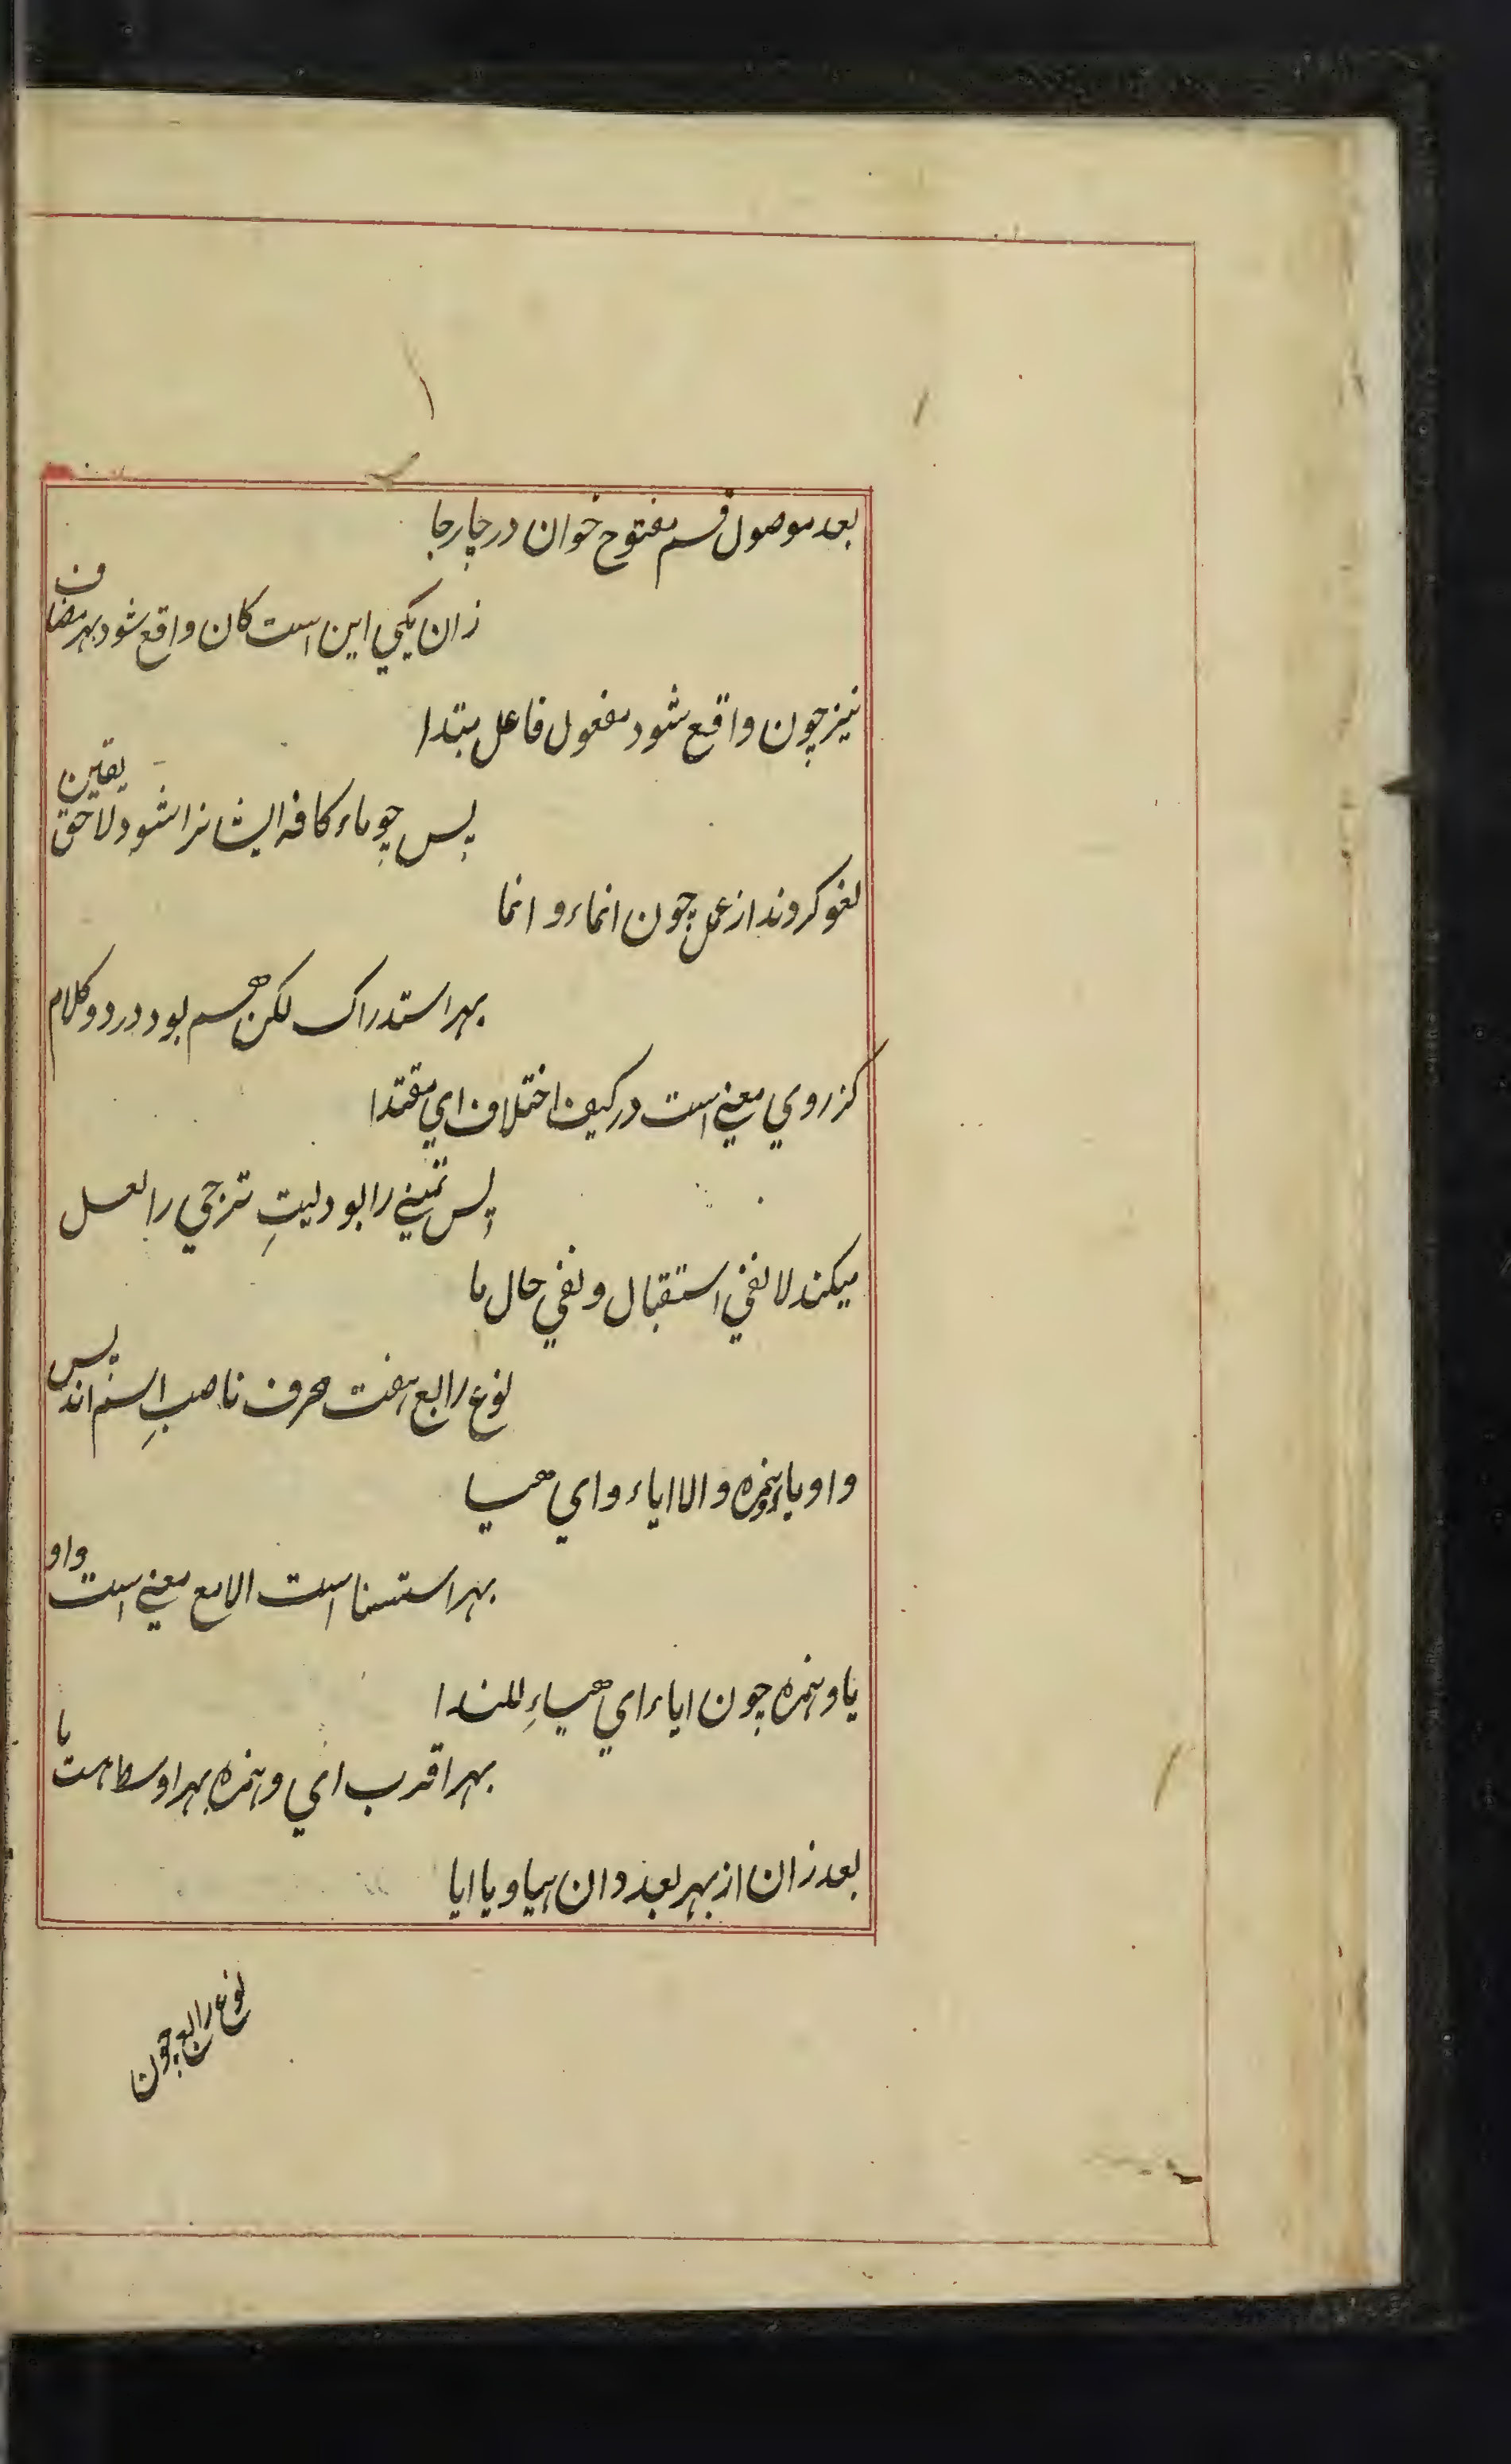 بعد موصول قسم مفتوح خوان در چار جا
زان یکي این است کان واقع شود بهر مضاف
نیز چون واقع شود مفعول فاعل مبتدا
پس چو ماء کافه ایشانرا شود لاحق یقین
لغو کروند از عمل چون انماء و انما
بهر استدراک لکن هم بود در دو کلام
کز روي معني است در کیف اختلاف اي مقتدا
پس تمني را بود لیتِ ترجي را لعل
میکند لا نفي استقبال و نفي حال ما
نوع رابع هفت حرف ناصبِ اسم اند پس
واو یاء همزه و الا ایاء و اي هیا
بهر استسنا است الا مع معني است واو
یا و همزه چون ایاء اي هیاءِ للندا
بهر اقرب اي و همزه بهر اوسط هست یا
بعد زان از بهر بعد دان هیا و یا ایا
نوع رابع چون